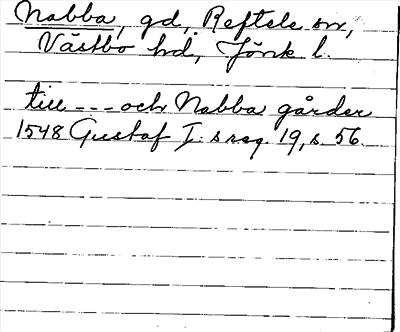 Nabba, gd, Reftele sn,
Västbo hd, Jönk l.
till --- och Nabba gårder
1548 Gustaf I:s reg. 19, s. 56.